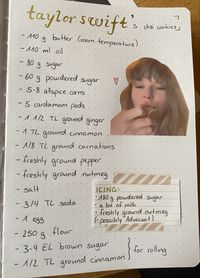 taylor swift's chai cookies
- 110 g butter (room temperature)
- 110 ml oil
- 80 g sugar
- 60 g powdered sugar
- 5-8 allspice corns
- 5 cardamom pods
- 1 1/2 TL ground ginger
- 1 TL ground cinnamon
- 1/8 TL ground carnations
- freshly ground pepper
- freshly ground nutmeg
- salt
- 3/4 TL soda
- 1 egg
- 250 g flour
- 3-4 EL brown sugar
- 1/2 TL ground cinnamon
} for rolling
ICING:
- 180 g powdered sugar
- a bit of milk
- freshly ground nutmeg
- (possibly Advocaat)